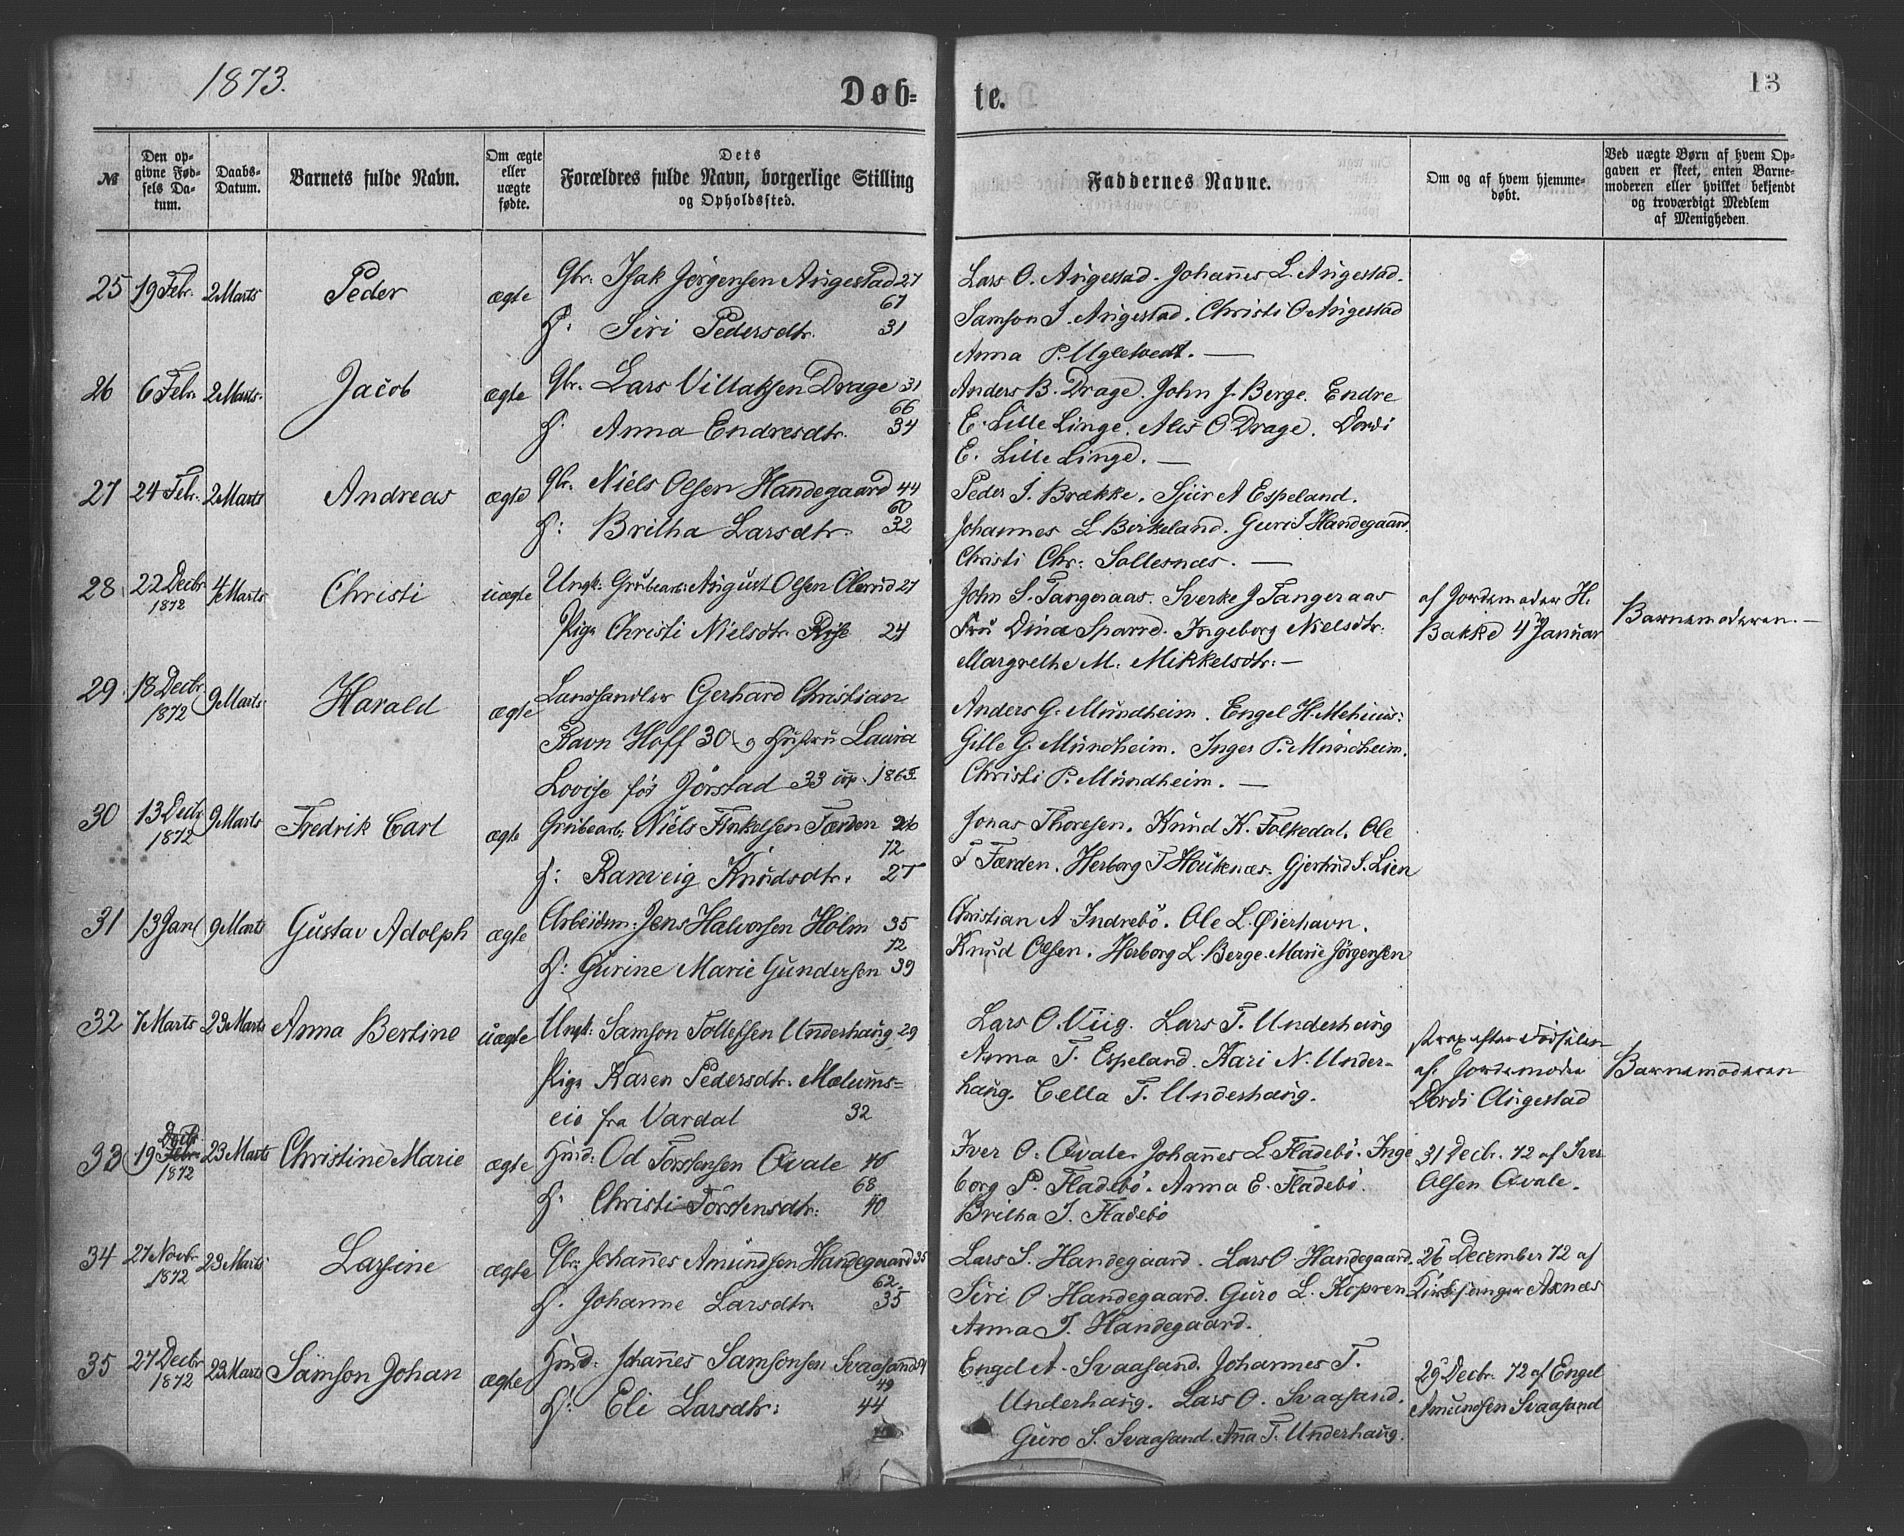 1873.
Døb=
te.
13
№
Den op-
givne Fød-
sels Da-
tum.
Daabs-
Datum.
Barnets fulde Navn.
Om ægte
eller
uægte
fødte.
Dets
Forældres fulde Navn, borgerlige Stilling
og Opholdssted.
Faddernes Navne.
Om og af hvem hjemme-
døbt.
Ved uægte Børn af hvem Op-
gaven er skeet, enten Barne-
moderen eller hvilket bekjendt
og troværdigt Medlem
af Menigheden.
25 19 Febr. 2 Marts Peder ægte Gbr: Isak Jörgensen Augestad 27
67
H: Siri Pedersdtr. 31
Lars O. Augestad. Johannes L. Augestad.
Samson I. Augestad. Christi O Augestad
Anna P. Ugletvedt. —
26 6 Febr. 2 Marts. Jacob ægte Gbr. Lars Villaksen Drage 31
66
H. Anna Endresdtr. 34
Anders B. Drage. John J. Berge. Endre
E. Lille Linge. Alis O Drage. Dordi
E. Lille Linge. —
27 24 Febr. 2 Marts Andreas ægte Gbr. Niels Olsen Handegaard 44
60
H: Britha Larsdtr. 32
Peder I. Brække. Sjur A Espeland.
Johannes L Birkeland. Guri I Handegaard.
Christi Chr: Sallesnæs. —
28. 22 Decbr 1872 4 Marts Christi uægte Ungk: Grubearb: August Olsen 27
Pige Christi Nielsdtr. 24
John S. Tangeraas. Sverke J Tangeraas
Fru Dina Sparre. Ingeborg Nielsdtr.
Margrethe M. Mikkelsdtr: —
af Jordemoder H.
Bakke 4 Januar
Barnemoderen. —
29. 18 Decbr 1872 9 Marts. Harald ægte Landhandler Gerhard Christian
Ravn Hoff 30 og Hustru Laura
Lovise før Jörstad 33 cop. 1865.
Anders G. Mundheim. Engel H.
Gitle G. Mundheim. Inger P. Mundheim.
Christi P. Mundheim. —
30 13 Decbr 1872 9 Marts Fredrik Carl ægte Grubearb: Niels Færden 26
72
H: Ranveig Knudsdtr. 27
Jonas Thoresen. Knud K. Folkedal. Ole
T Færden. Herborg T Houkenæs. Gjertrud S. Lien
31 13 Jan 9 Marts Gustav Adolph ægte Arbeidsm: Jens Halvorsen Holm 35
72
H: Gurine Marie Gundersen 39
Christian A Indrebö. Ole L. Øierhavn.
Knud Olsen. Herborg L. Berge. Marie Jörgensen
32 7 Marts 23 Marts Anna Bertine uægte Ungk: Samson Tollefsen Underhaug 29
Pige Karen Pedersdtr. Mælums=
eie fra Vardal 32
Lars O. Viig. Lars T. Underhaug
Anna T. Espeland. Kari N. Under-
haug. Cella T. Underhaug.
strax efter Fødselen
af Jordemoder
Dordi Augestad
Barnemoderen
33 19 Decbr 1872 23 Marts Christine Marie ægte Husd: Od Torstensen Qvale 46
68
H. Christi Torstensdtr: 40
Iver O. Qvale. Johannes L Fladebö. Inge
borg P. Fladebö. Anna E. Fladebö.
Britha I. Fladebö
31 Decbr. 72 af Iver
Olsen Qvale.
34 27 Novbr. 1872 23 Marts Lassine ægte Gbr. Johannes Amundsen Handegaard 35
62
H. Johanne Larsdtr. 35
Lars S. Handegaard. Lars O. Handegaard.
Siri O Handegaard. Guro L. Kopren
Anna I. Handegaard.
26 December 72 af
Kirkesanger Axnæs
35 27 Decbr 1872 23 Marts Samson Johan ægte Husd: Johannes Samsonsen Svaasand
49
H: Eli Larsdtr: 44
Engel A. Svaasand. Johannes T.
Underhaug. Lars O. Svaasand.
Guro S. Svaasand. Ana T. Underhaug.
29 Decbr. 72 af Engel
Amundsen Svaasand